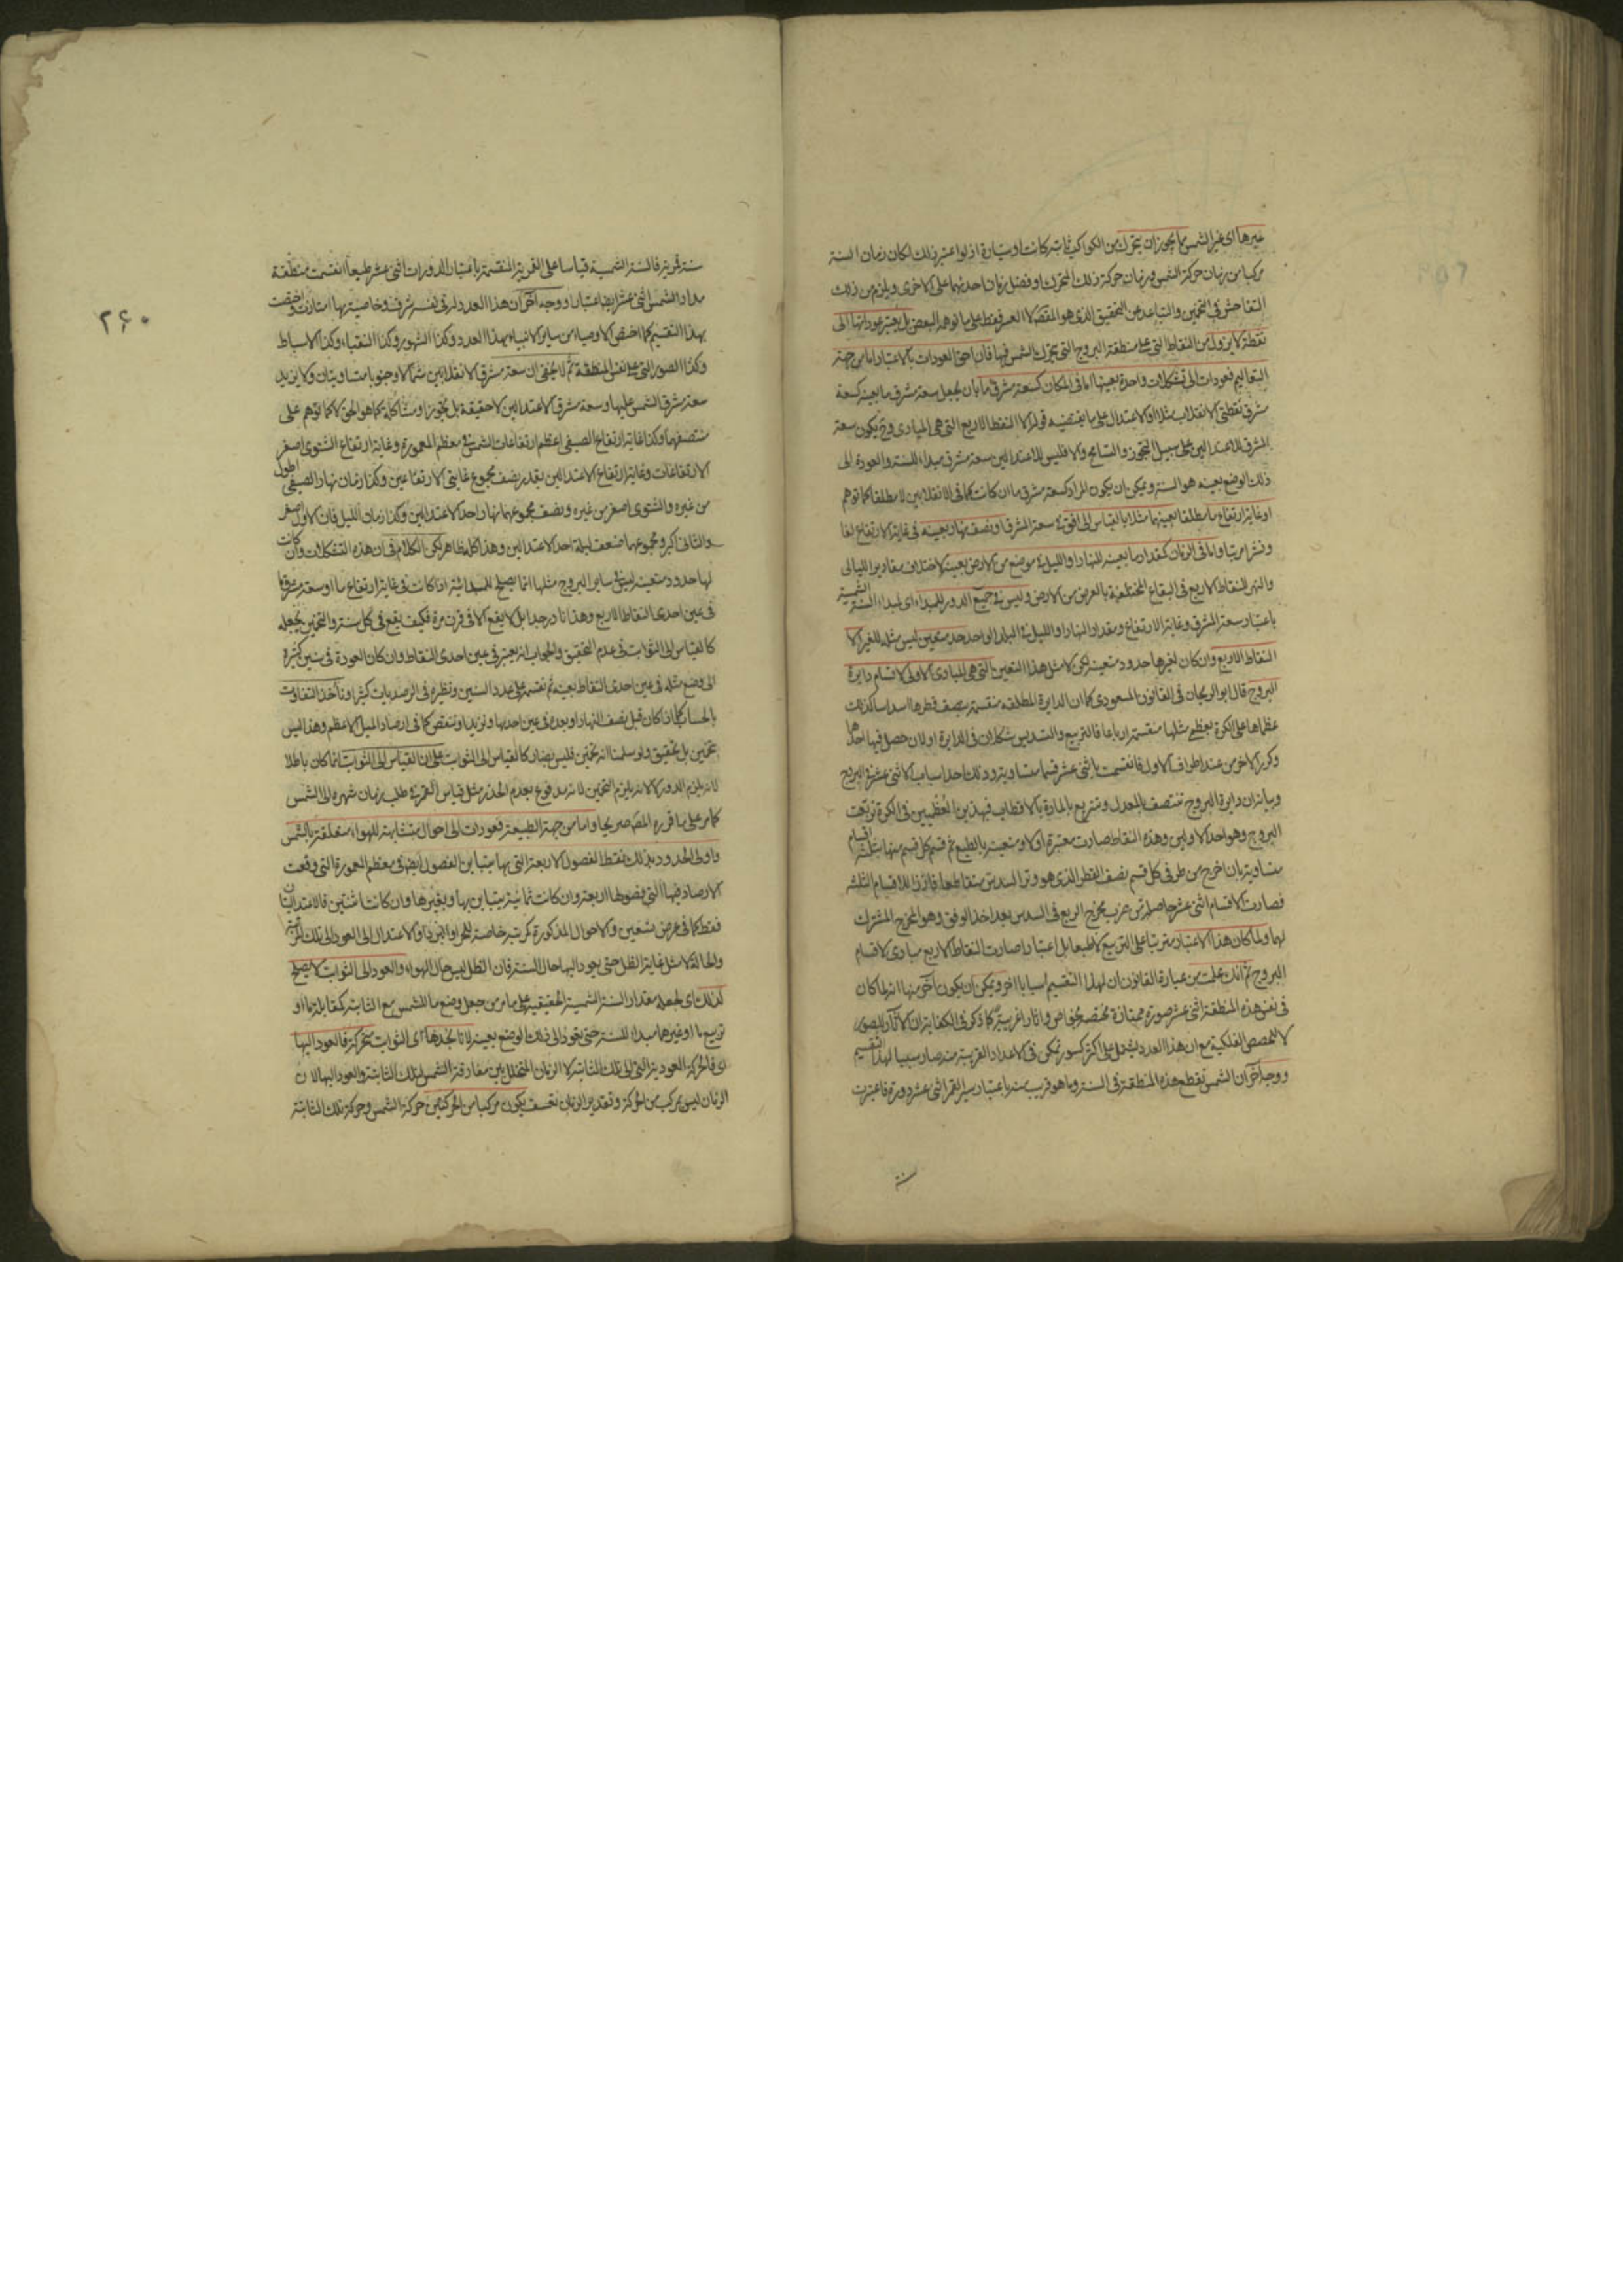 غيرها اى غير الشمس مما يجوز ان يتحرك من الكواكب ثابتة كانت او سيارة اذ لو اعتبر ذلك لكان زمان السنة
مركبا من زمان حركة الشمس وزمان حركة ذلك المتحرك او فضل زمان احدهما على الاخرى ويلزم من ذلك
التفاحش فى التخمين والتباعد عن التحقيق الذى هو المقصد لا العسر فقط على ما توهمه البعض بل يعتبر عوداتها الى
نقطة لا يزول من النقاط التى على منطقة البروج التى يتحرك الشمس فيها فان احق العودات بالاعتبار اما من جهة
التعاليم فعودات الى تشكلات واحدة بعينها اما فى المكان كسعة مشرق ما بان يجعل سعة مشرق ما بعينه كسعة
مشرق نقطتى الانقلاب مثلا او الاعتدال على ما يقتضيه قوله الا النقط الاربع التى هى المبادى وح يكون سعة
المشرق للاعتدالين على سبيل التجوز والتسامح والا فليس للاعتدالين سعة مشرق مبداء للسنة والعودة الى
ذلك الوضع بعينه هو السنة ويمكن ان يكون المراد كسعة مشرق ما ان كانت كما فى الانقلابين لا مطلقا كما توهم
او غاية ارتفاع ما مطلقا بعينهما مثلا بالقياس الى افق فى سعة المشرق او نصف نهار بعينه فى غاية الارتفاع لفا
ونشرا مرتبا واما فى الزمان كمقدار ما بعينه للنهار او الليل فى موضع من الارض بعينه لاختلاف مقادير الليالى
والنهر للنقاط الاربع فى البقاع المختلفة بالعرض من الارض وليس فى جميع الدور للمبداء اى لمبداء السنة الشمسية
باعتبار سعة المشرق وغاية الارتفاع ومقدار النهار او الليل فى البلد الواحد حد متعين ليس مثله للغير الا
النقاط الاربع وان كان لغيرها حدود متعينة لكن لا مثل هذا التعين التى هى المبادى الاولى لاقسام دايرة
البروج قال ابو الريحان فى القانون المسعودى كما ان الدايرة المطلقة منقسمة بنصف قطرها اسداسا كذلك
عظماها على الكرة بعظمى مثلها منقسمة ارباعا فالتربيع والتسديس شكلان فى الدايرة اولان حصل فيها احدهما
وكرر الاخر من عند اطراف الاول فانقسمت باثنى عشر قسما متساوية وذلك احد اسباب الاثنى عشرة البروج
وبيانه ان دايرة البروج تنتصف بالمعدل وتتربع بالمارة بالاقطاب فبهذين العظميين فى الكرة تربعت
البروج وهو احد الاولين وهذه النقاط صارت معتبرة اولا ومتعينة بالطبع ثم قسم كل قسم منها بثلثة اقسام
متساوية بان اخرج من طرفى كل قسم نصف القطر الذى هو وتر السدس متقاطعا فافرزا للاقسام الثلثة
فصارت الاقسام اثنى عشر حاصلة من ضرب مخرج الربع فى السدس بعد اخذ الوفق وهو المخرج المشترك
لهما ولما كان هذا الاعتبار مترتبا على التربيع لا طبعا بل اعتبارا صارت النقاط الاربع مبادى لاقسام
البروج ثم انك علمت من عبارة القانون ان لهذا التقسيم اسبابا اخر ويمكن ان يكون اخر منها انه لما كان
فى نفس هذه المنطقة اثنى عشر صورة ممتازة مختصة بخواص واثار غريبة كما ذكر فى الكفاية ان الاثار للصور
لا للحصص الفلكية مع ان هذا العدد يشتمل على اكثر كسور تمكن فى الاعداد القريبة منه صار سببا لهذا التقسيم
ووجه اخر ان الشمس تقطع هذه المنطقة فى السنة وما هو قريب منه باعتبار سير القمر اثنى عشر دورة فاعتبرت
سنة
٢٦٠
سنة قمرية فالسنة الشمسية قياسا على القمرية المنقسمة باعتبار الدورات اثنى عشر طبعا انقسمت منطقة
مدار الشمس اثنى عشر ايضا اعتبارا ووجه اخر ان هذا العدد له فى نفسه شرف وخاصية بها امتازت واختصت
بهذا التقسيم كما اختص الاوصياء من ساير الانبياء بهذا العدد وكذا الشهور وكذا النقباء وكذا الاسباط
وكذا الصور التى على نفس المنطقة ثم لا يخفى ان سعة مشرق الانقلابين شمالا وجنوبا متساويتان ولا يزيد
سعة مشرق الشمس عليها وسعة مشرق الاعتدالين لا حقيقة بل تجوزا ومشاكلة كما هو الحق لا كما توهم على
منتصفهما وكذا غاية ارتفاع الصيفى اعظم ارتفاعات الشمس فى معظم المعمورة وغاية ارتفاع الشتوى اصغر
الارتفاعات وغاية ارتفاع الاعتدالين بقدر نصف مجموع غايتى الارتفاعين وكذا زمان نهار الصيفى اطول
من غيره والشتوى اصغر من غيره ونصف مجموعهما نهار احد الاعتدالين وكذا زمان الليل فان الاول اصغر
والثانى اكبر ومجموعهما ضعف ليلة احد الاعتدالين وهذا كله ظاهر لكن الكلام فى ان هذه التشكلات وان كانت
لها حدود متعينة ليس فى ساير البروج مثلها انما يصلح للمبدائية اذا كانت فى غاية ارتفاع ما او سعة مشرق ما
فى عين احدى النقاط الاربع وهذا نادر جدا بل لا يقع الا فى قرن مرة فكيف يقع فى كل سنة والتخمين يجعله
كالقياس الى الثوابت فى عدم التحقيق والجواب انه يعتبر فى عين احدى النقاط وان كان العودة فى سنين كثيرة
الى وضع مثله فى عين احدى النقاط بعينه ثم نقسمه على عدد السنين ونظيره فى الرصديات كثير او ناخذ التفاوت
بالحساب كما اذا كان قبل نصف النهار او بعده فى عين احدها ونزيد او ننقص كما فى ارصاد الميل الاعظم وهذا ليس
بتخمين بل تحقيق ولو سلمنا انه تخمين فليس بضار كالقياس الى الثوابت على ان القياس الى الثوابت انما كان باطلا
لانه يلزم الدور لا لانه يلزم التخمين لانه مدفوع بعدم الحذر مثل قياس القمر فى طلب زمان شهره الى الشمس
كما مر على ما قرره المصـ صريحا واما من جهة الطبيعة فعودات الى احوال متشابهة للهواء متعلقة بالشمس
واولى الحدود بذلك نقط الفصول الاربعة التى بها يتباين الفصول ايضا فى معظم المعمورة التى وقعت
الارصاد فيها التى فصولها اربعة وان كانت ثمانية يتباين بها وبغيرها وان كانتا اثنتين فالاعتداليتان
فقط كما فى عرض تسعين والاحوال المذكورة كمرتبة خاصة للحر او البرد او الاعتدال الى العود الى تلك المرتبة
والحالة لا مثل غاية الظل حتى يعود اليها حال السنة فان الظل ليس حال الهواء والعود الى الثوابت لا يصلح
لذلك اى لجعله مقدار السنة الشمسية الحقيقية على ما مر من جعل وضع ما للشمس مع الثابتة كمقابلة ما او
تربيع ما او غيرهما مبداء للسنة حتى يعود الى ذلك الوضع بعينه لانا نجدها اى الثوابت متحركة فالعود اليها
اى فالحركة العودية التى الى تلك الثابتة لا الزمان المتخلل بين مفارقة الشمس لتلك الثابتة والعود اليها لان
الزمان ليس بمركب من الحركة وتقدير الزمان تعسف يكون مركبا من الحركتين حركة الشمس وحركة تلك الثابتة